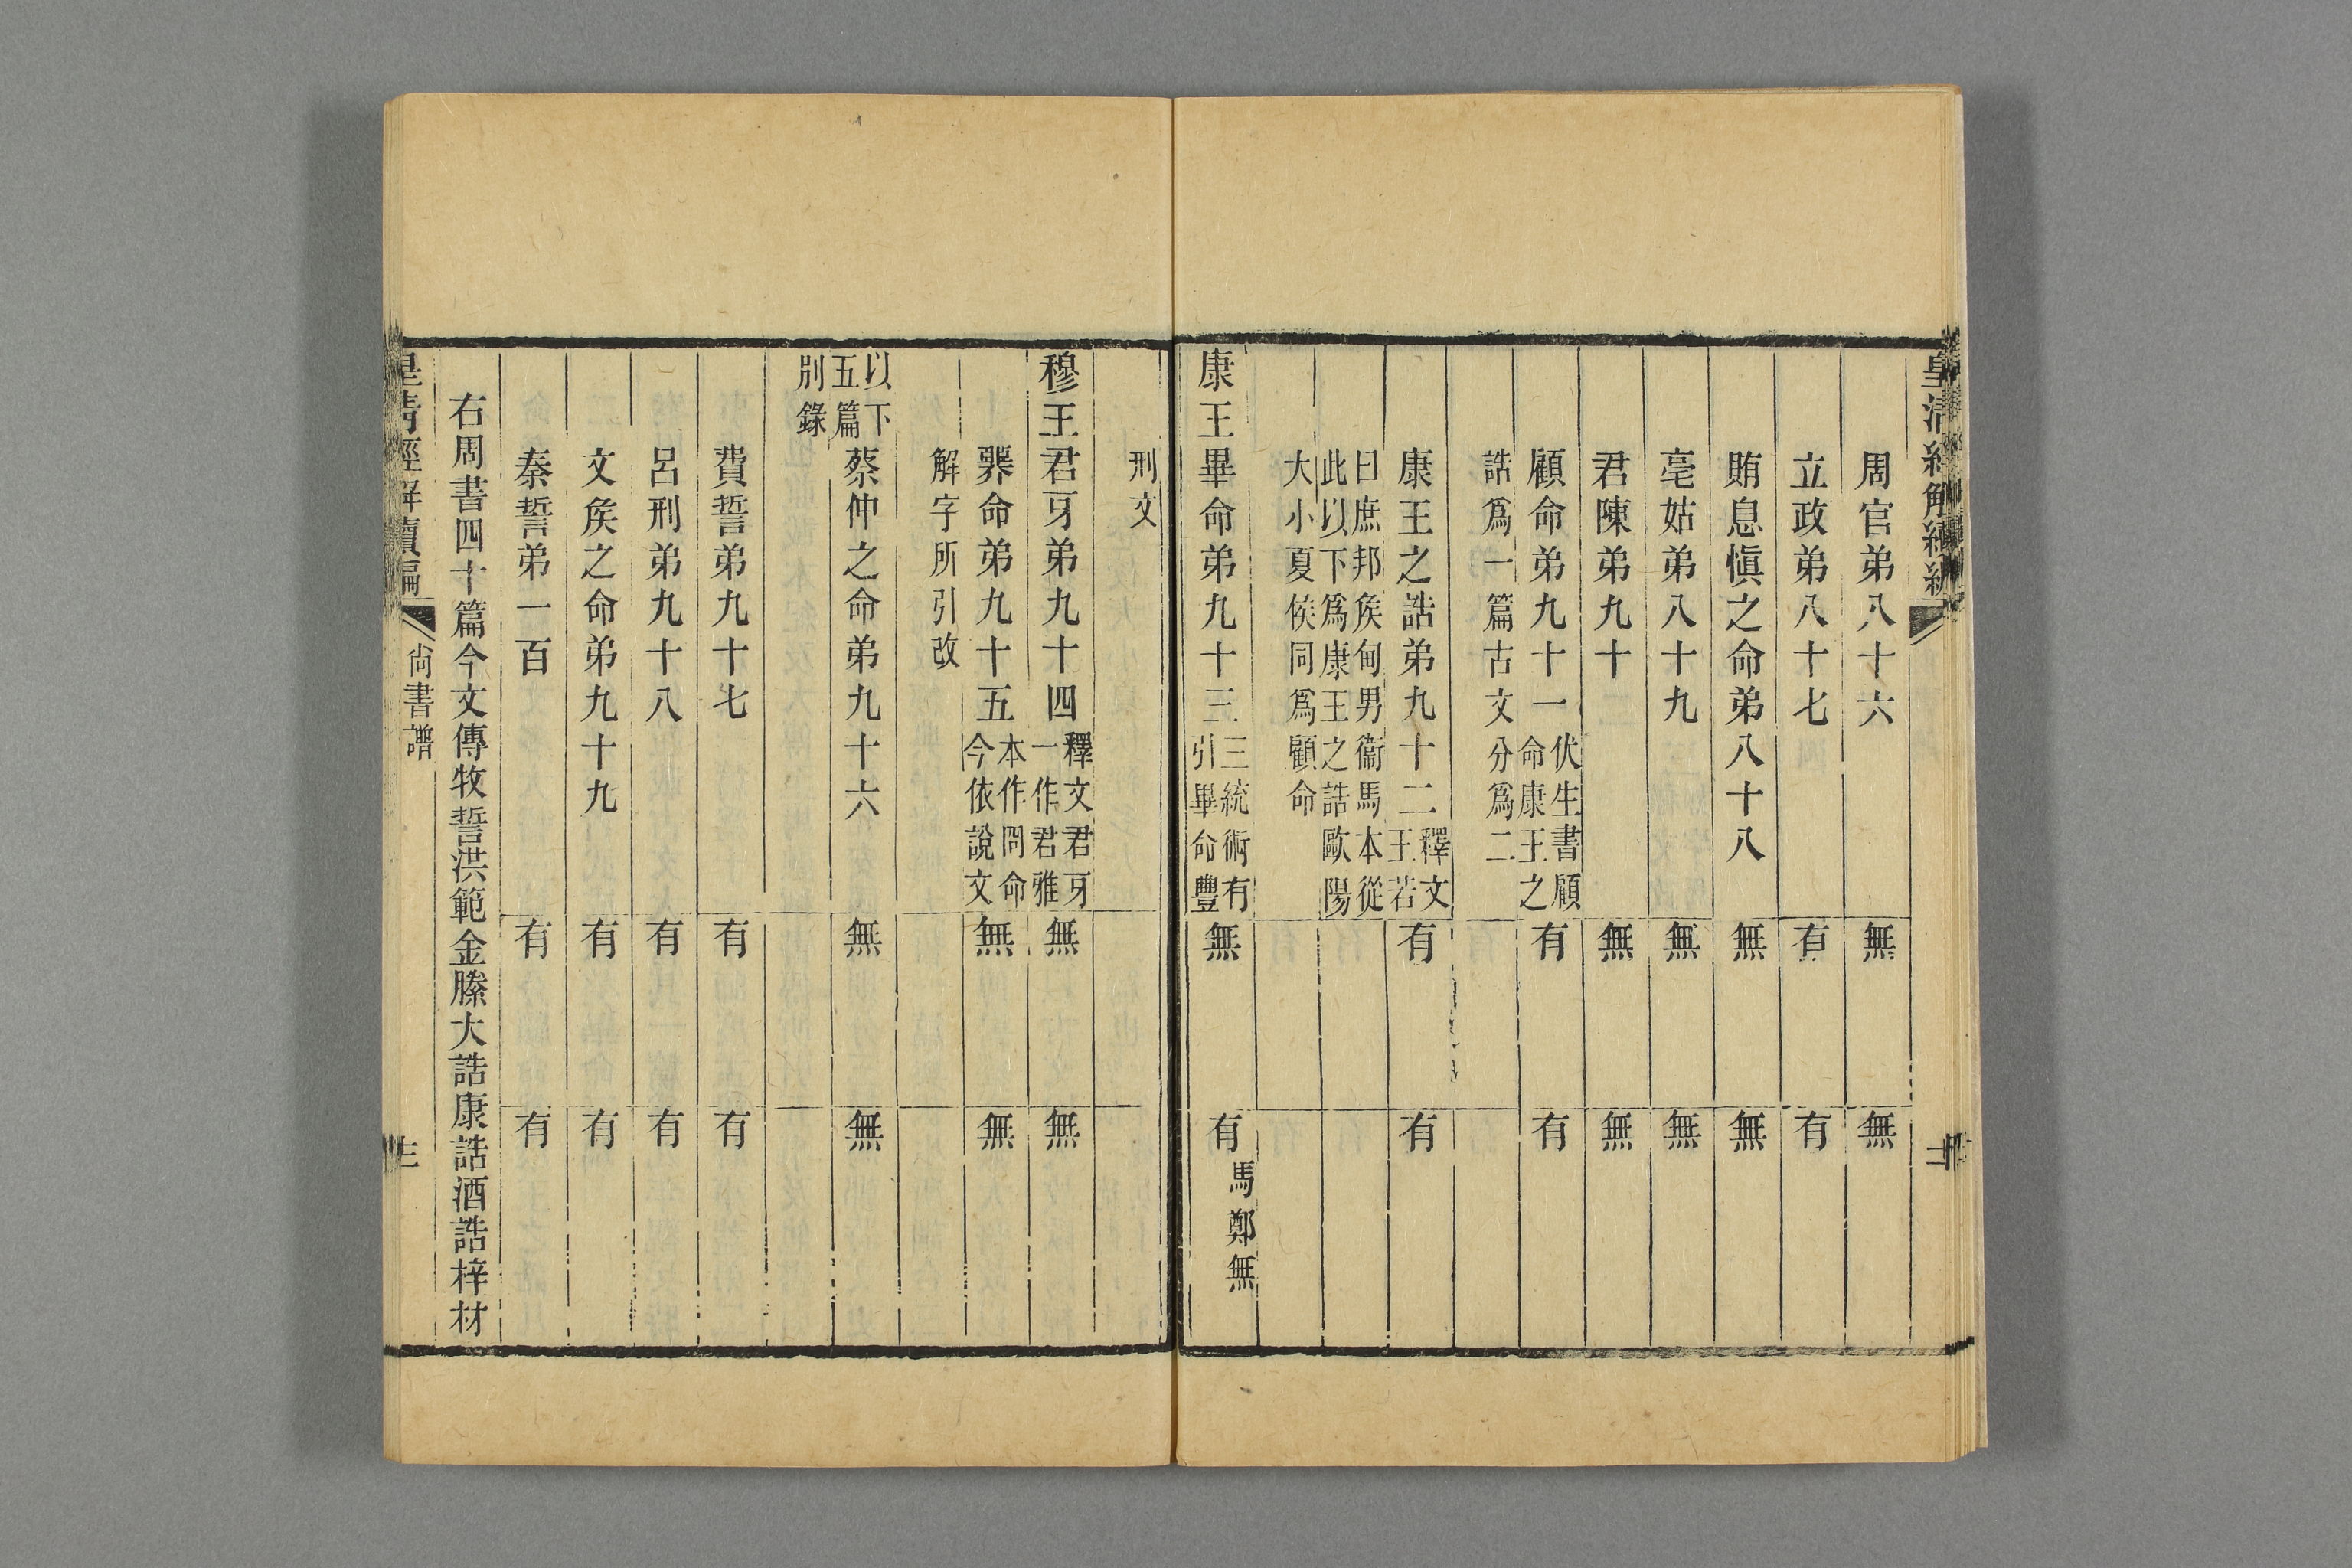 皇清經解續編
周官弟八十六 無 無
立政弟八十七 有 有
賄息愼之命弟八十八 無 無
亳姑弟八十九 無 無
君陳弟九十 無 無
顧命弟九十一 伏生書顧命康王之 有 有
誥爲一篇古文分爲二
康王之誥弟九十二 釋文王若 有 有
曰庶邦矦甸男衞馬本從此以下爲康王之誥歐陽
大小夏侯同爲顧命
康王畢命弟九十三 三統術有引畢命豐 無 有 馬鄭無
刑文
穆王君牙弟九十四 釋文君牙一作君雅 無 無
臩命弟九十五 本作冏命今依說文 無 無
解字所引改
以下五篇別錄 蔡仲之命弟九十六 無 無
費誓弟九十七 有 有
呂刑弟九十八 有 有
文矦之命弟九十九 有 有
秦誓弟一百 有 有
右周書四十篇今文傳牧誓洪範金縢大誥康誥酒誥梓材
皇清經解續編 尚書譜